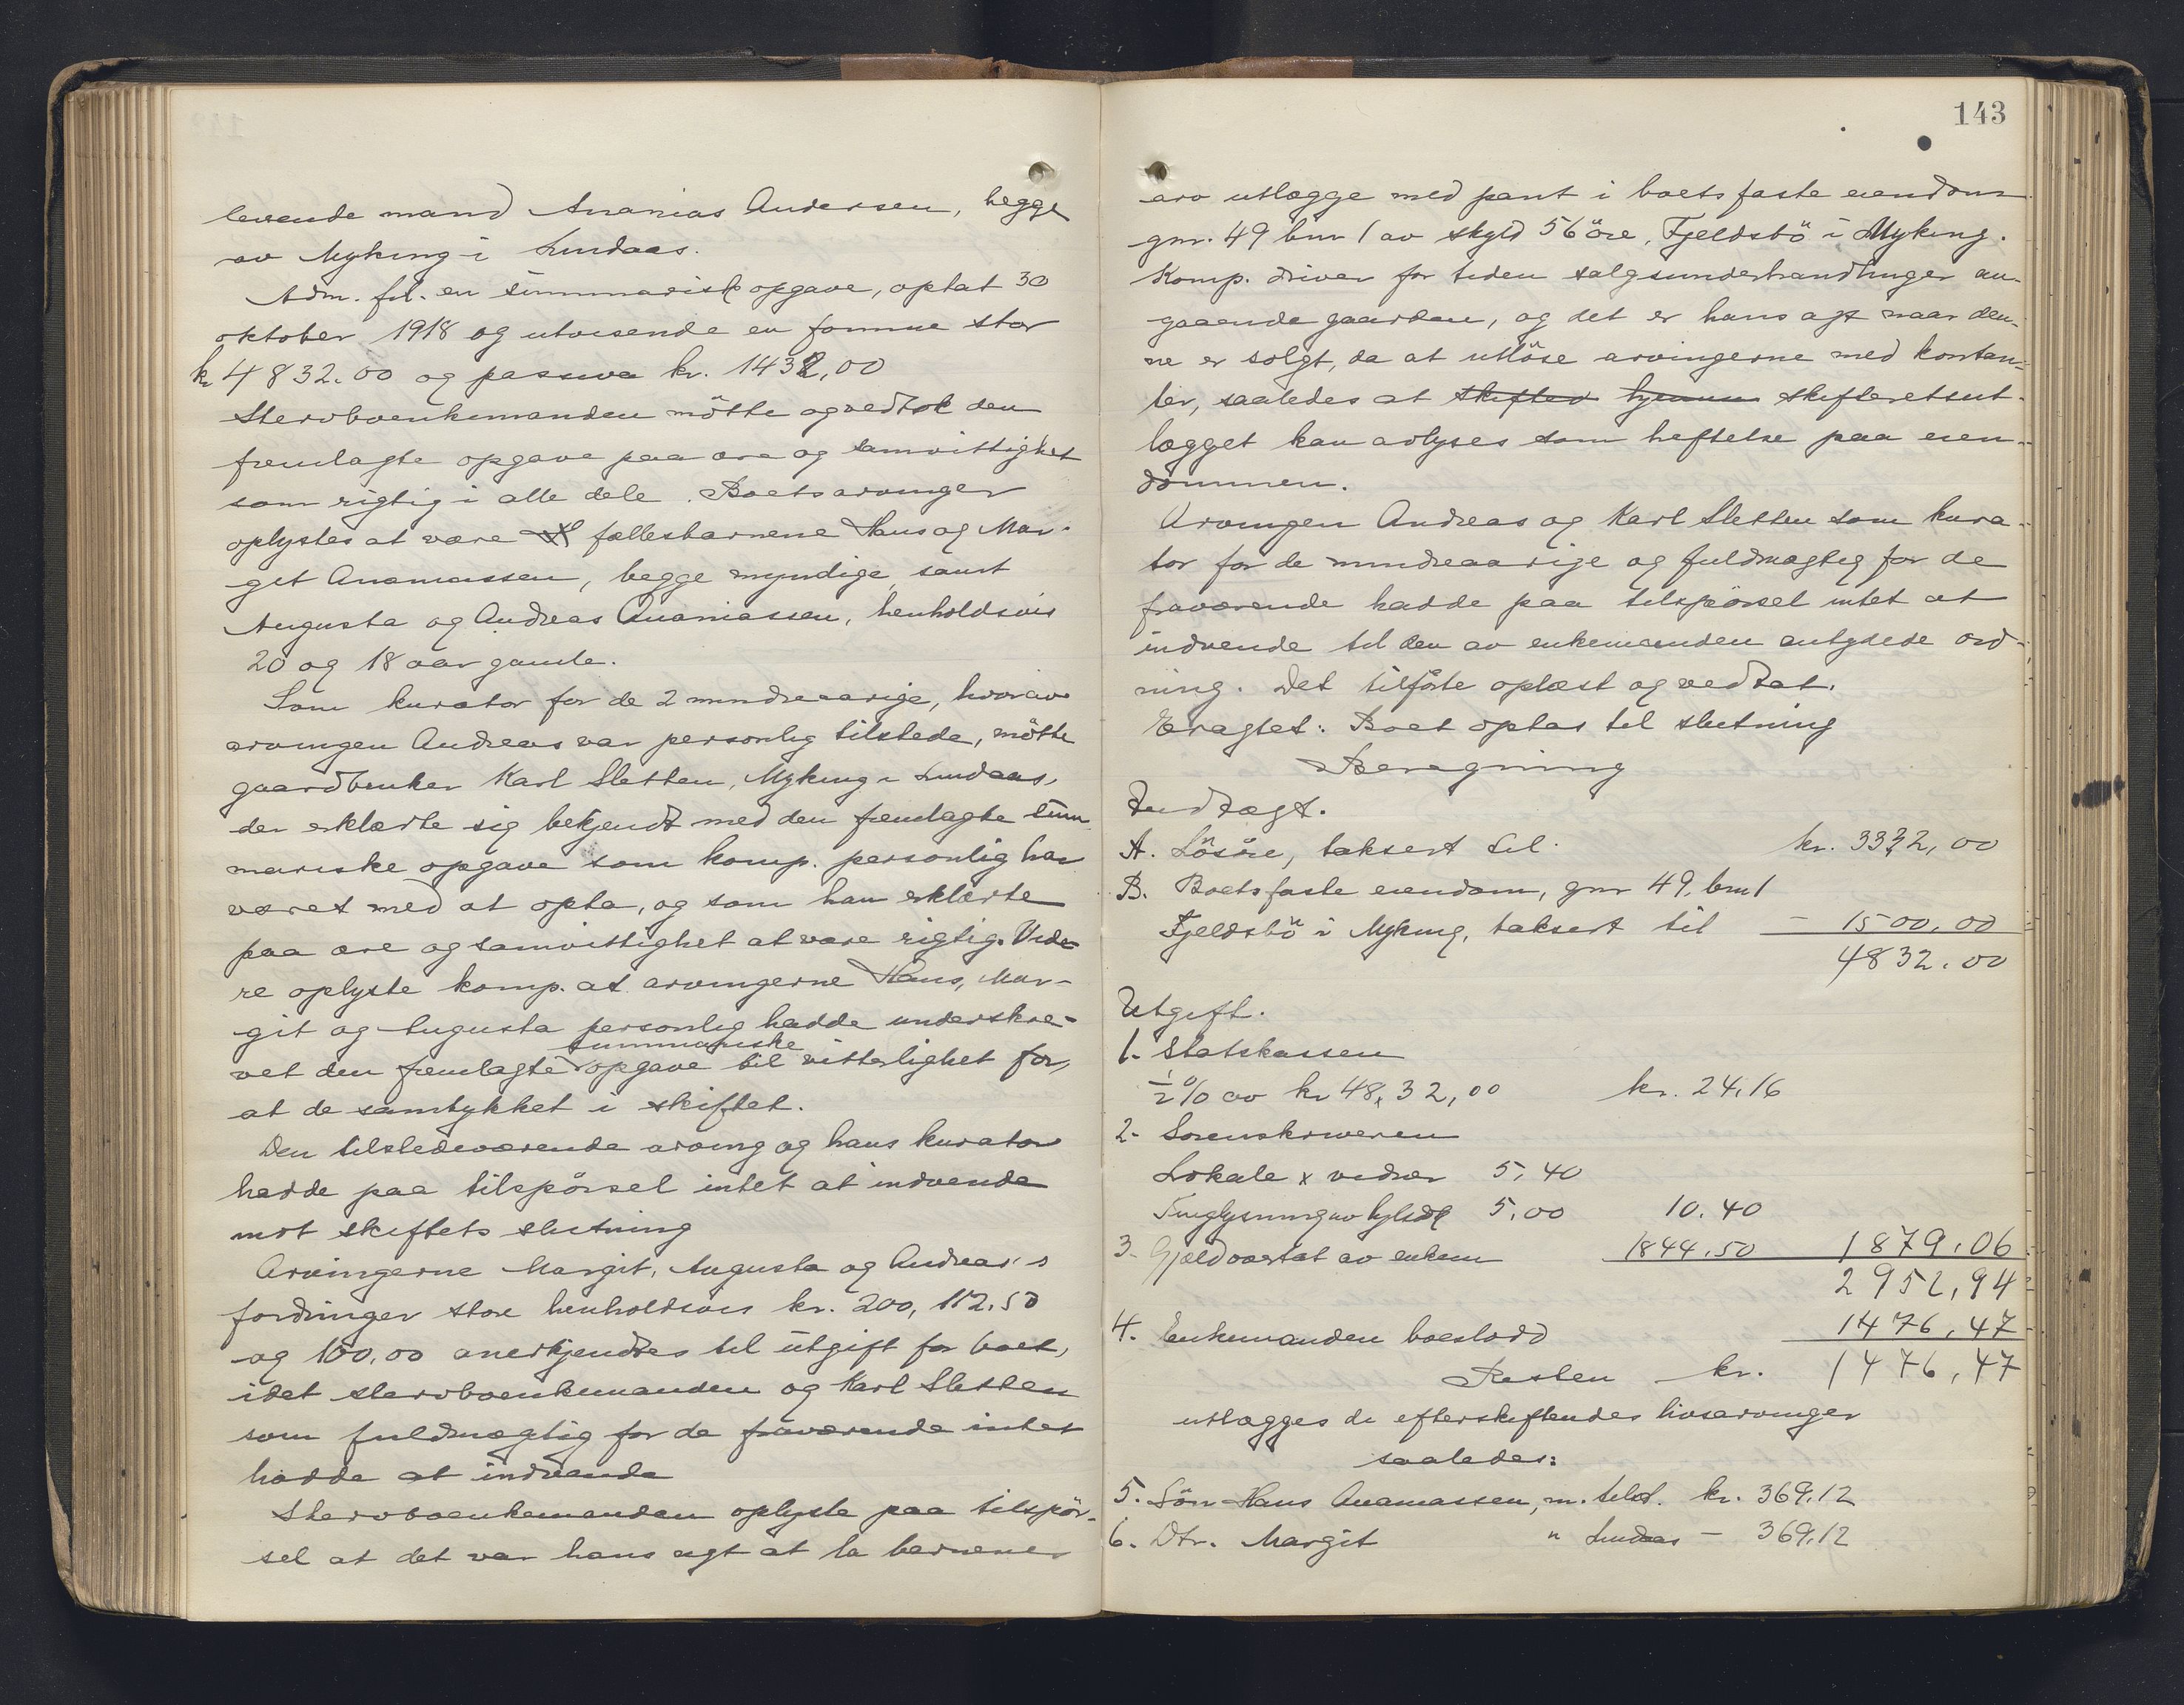 levende mand Ananias Andersen, begge
av Myking i Lindaas.
Adm. frl. en summarisk opgave, optat 30
oktober 1918 og utvisende en formue stor
kr 4832.00 og passiva kr. 1432,00
Stervboenkemanden mötte og vedtok den
fremlagte opgave paa ære og samvittighet
som rigtig i alle dele. Boets arvinger
oplystes at være fællesbarnene Hans og Mar-
git Ananiassen, begge myndige samt
Augusta og Andreas Ananiassen, henholdsvis
20 og 18 aar gamle.
Som kurator for de 2 mindreaarige, hvorav
arvingen Andreas var personlig tilstede, mötte
gaardbruker Karl Sletten, Myking i Lindaas,
der erklærte sig bekjendt med den fremlagte sum
mariske opgave som komp. personlig har
været med at opta, og som han erklærte
paa ære og samvittighet at være rigtig. Vide-
re oplyste komp. at arvingerne Hans, Mar-
git og Augusta personlig hadde underskre-
summariske
vet den fremlagte opgave til vitterlighet for,
at de samtykket i skiftet.
Den tilstedeværende arving og hans kurator
hadde paa tilspörsel intet at indvende
mot skiftets slutning
Arvingerne Margit, Augusta og Andreas's
fordringer store henholdsvis kr. 200, 112.50
og 100,00 anerkjendtes til utgift for boet,
idet stervboenkemanden og Karl Sletten
som fuldmægtig for de fraværende intet
hadde at indvende
Stervboenkemanden oplyste paa tilspör-
sel at det var hans agt at la barnenes
143
arv utlægge med pant i boets faste eiendom
gnr. 49 bnr 1 av skyld 56 öre, Fjeldsbö i Myking.
Komp. driver for tiden salgsunderhandlinger an-
gaaende gaarden, og det er hans agt naar den-
ne er solgt, da at utlöse arvingerne med kontan-
ter, saaledes at skiftev hjemm skifteretsut-
lægget kan avlyses som heftelse paa eien-
dommen.
Arvingen Andreas og Karl Sletten som kura-
tor for de mindreaarige og fuldmægtig for de
fraværende hadde paa tilspörsel intet at
indvende til den av enkemanden antydede ord-
ning. Det tilförte oplæst og vedtat.
Eragtet: Boet optas til slutning
Beregning
Indtægt.
A. Lösöre, taksert til kr. 3332,00
B. Boets faste eiendom, gnr 49, bnr 1
Fjeldsbö i Myking, taksert til - 1500,00
4832.00
Utgift.
1. Statskassen
½% av kr 48,32,00 kr. 24,16
2. Sorenskriveren
Lokale x vidner 5,40
Tinglysning av 5,00 10.40
3. Gjæld overtat av enkem 1844.50 1879,06
2952,94
4. Enkemanden boeslodd 1476,47
Resten kr. 1476,47
utlægges de efterskiftendes livsarvinger
saaledes:
5. Sön Hans Ananiassen, m. kr. 369,12
6. Dtr. Margit " Lindaas - 369,12